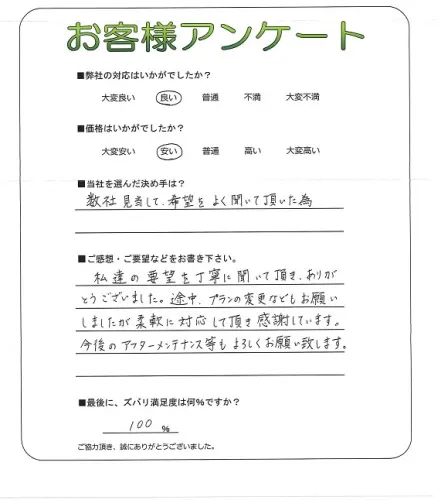 お客様アンケート
■弊社の対応はいかがでしたか？
大変良い 良い 普通 不満 大変不満
■価格はいかがでしたか？
大変安い 安い 普通 高い 大変高い
■当社を選んだ決め手は？
数社見当して、希望をよく聞いて頂いた為
■ご感想・ご要望などをお書き下さい。
私達の要望を丁寧に聞いて頂き、ありが
とうございました。途中、プランの変更などもお願い
しましたが柔軟に対応して頂き感謝しています。
今後のアフターメンテナンス等もよろしくお願い致します。
■最後に、ズバリ満足度は何％ですか？
100 %
ご協力頂き、誠にありがとうございました。